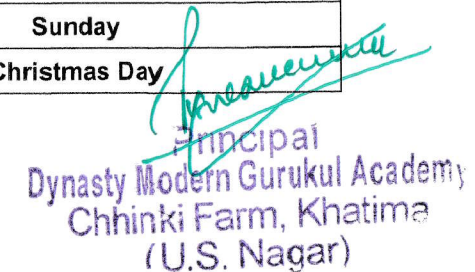 Sunday
Christmas Day
Principal
Dynasty Modern Gurukul Academy
Chhinki Farm, Khatima
(U.S. Nagar)